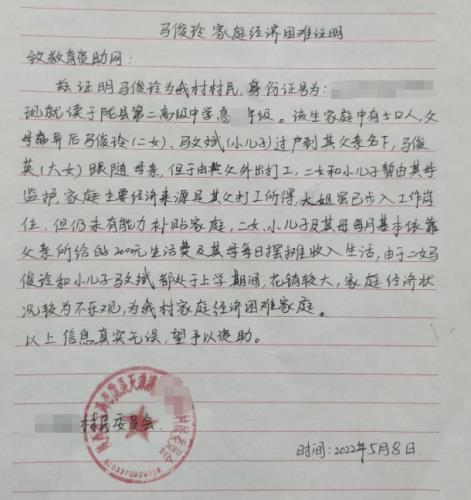 马俊玲家庭经济困难证明
致教育资助网:
兹证明马俊玲为我村村民,身份证号为:
现就读于陇县第二高级中学高 年级。该生家庭中有5口人,父
母离异后马俊玲(二女)、马文斌(小儿子)过户到其父亲名下,马俊
英(大女)跟随母亲,但于由其父外出打工,二女和小儿子暂由其母
监护,家庭主要经济来源是其父打工所得,大姐虽已步入工作岗
位,但仍未有能力补贴家庭,二女、小儿子及其母每月基本依靠
父亲所给的2000元生活费及其母每日摆摊收入生活,由于二女马
俊玲和小儿子马文斌都处于上学期间,花销较大,家庭经济状
况较为不乐观,为我村家庭经济困难家庭。
以上信息真实无误,望予以资助。
村民委员会
时间:2022年5月8日